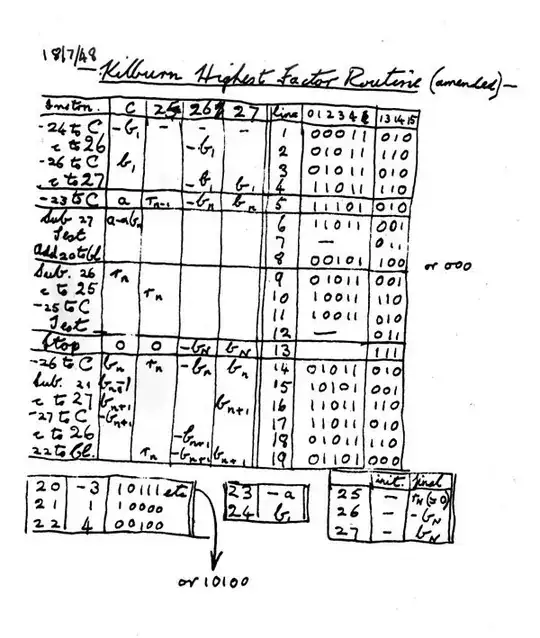 18/7/48
Kilburn Highest Factor Routine (amended)—
Instrn. C 25 26 27 line 01234 131415
-24 to C -b1 - - - 1 00011 010
c to 26 -b1 2 01011 110
-26 to C b1 3 01011 010
c to 27 -b1 b1 4 11011 110
-23 to C a rn-1 -bn bn 5 11101 010
Sub 27 a-bn 6 11011 001
Test 7 — 011
Add 20 to bl. 8 00101 100 or 000
Sub. 26 rn 9 01011 001
c to 25 rn 10 10011 110
-25 to C 11 10011 010
Test 12 — 011
Stop 0 0 -bN bN 13 111
-26 to C bn rn -bn bn 14 01011 010
Sub. 21 bn+1 15 10101 001
c to 27 bn+1 bn+1 16 11011 110
-27 to C -bn+1 17 11011 010
c to 26 -bn+1 18 01011 110
22 to bl. rn -bn+1 bn+1 19 01101 000
20 -3 10111 etc
21 1 10000
22 4 00100
or 10100
23 -a
24 b1
init. final
25 - rN (=0)
26 - -bN
27 - bN